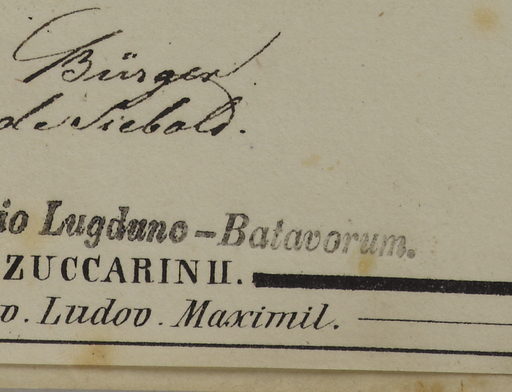 Bürger
de Siebold.
io Lugduno-Batavorum.
ZUCCARINII.
v. Ludov. Maximil.